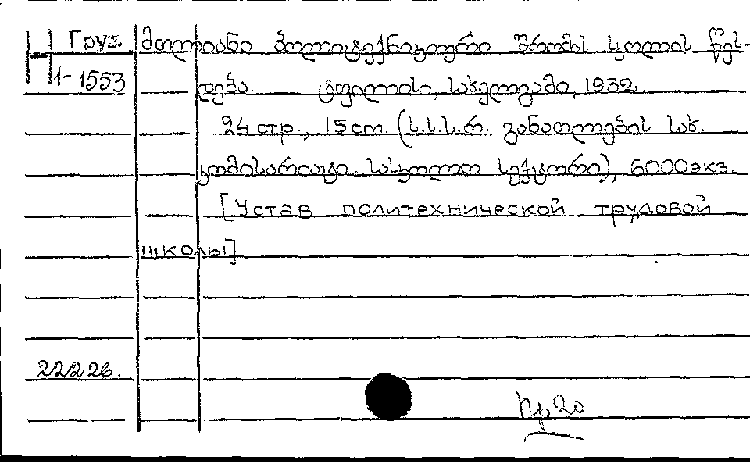 Груз. მთლიანი პოლიტექნიკური შრომის სკოლის წეს-
1-1553 დება. ტფილისი, სახელგამი, 1932.
24 стр., 15 см. (ს.ს.ს.რ. განათლების სახ.
კომისარიატი. სასკოლო სექტორი), 6000 экз.
[Устав политехнической трудовой
школы]
22226.